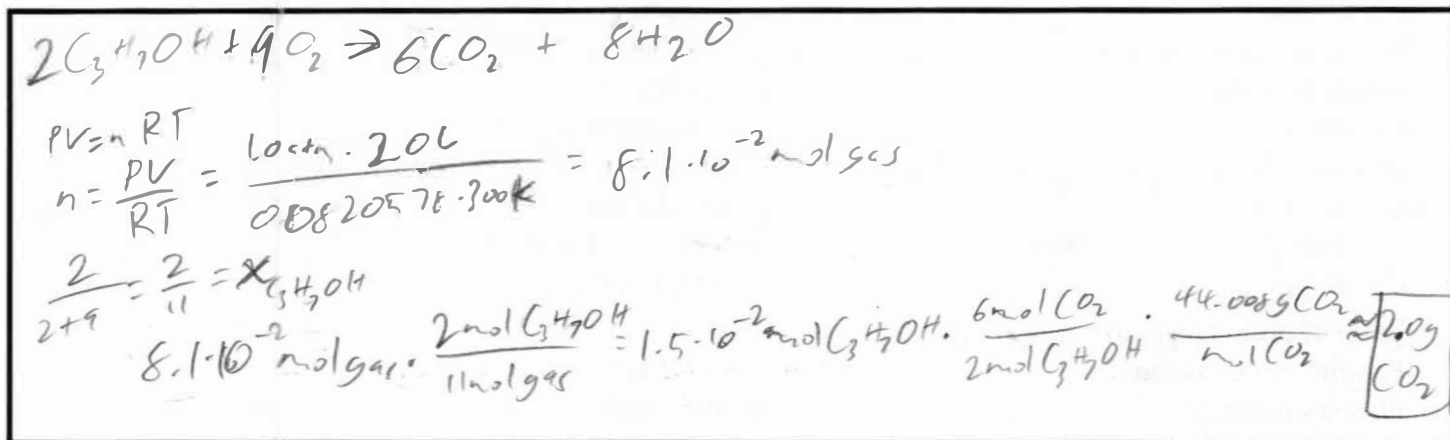 2C₃H₇OH + 9O₂ → 6CO₂ + 8H₂O
PV = nRT
n = PV/RT = 1.0 atm · 2.0L / 0.0820578 · 300K = 8.1·10⁻² mol gas
2/(2+9) = 2/11 = X C₃H₇OH
8.1·10⁻² mol gas · 2 mol C₃H₇OH / 11 mol gas = 1.5·10⁻² mol C₃H₇OH · 6 mol CO₂ / 2 mol C₃H₇OH · 44.008 g CO₂ / mol CO₂ ≈ 2.0g CO₂